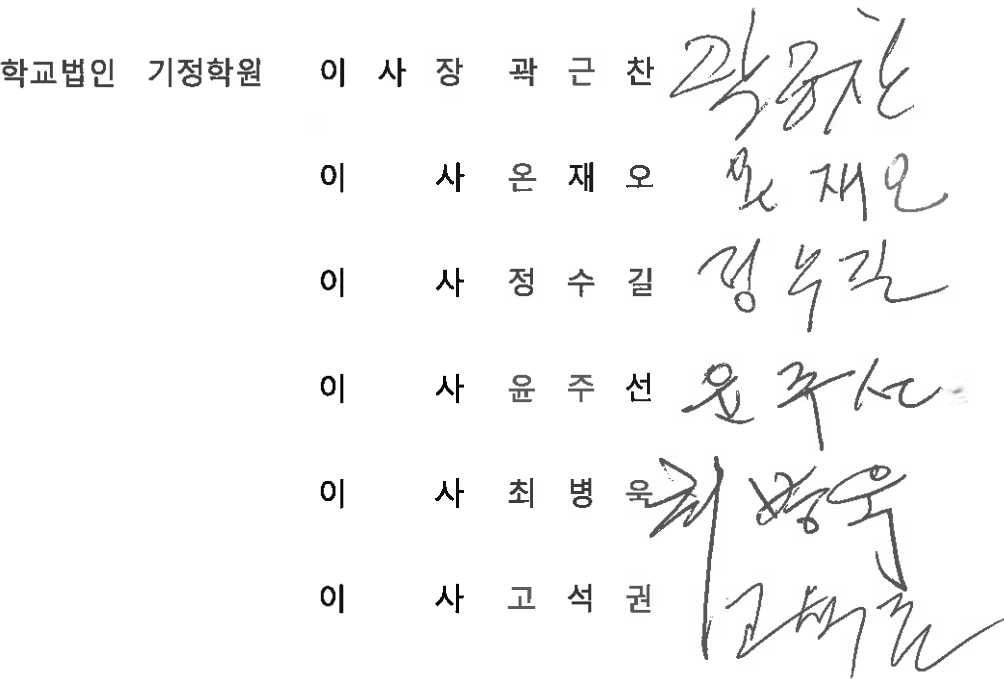 학교법인 기정학원 이 사 장 곽 근 찬 곽근찬
이 사 온 재 오 온재오
이 사 정 수 길 정수길
이 사 윤 주 선 윤주선
이 사 최 병 욱 최병욱
이 사 고 석 권 고석권